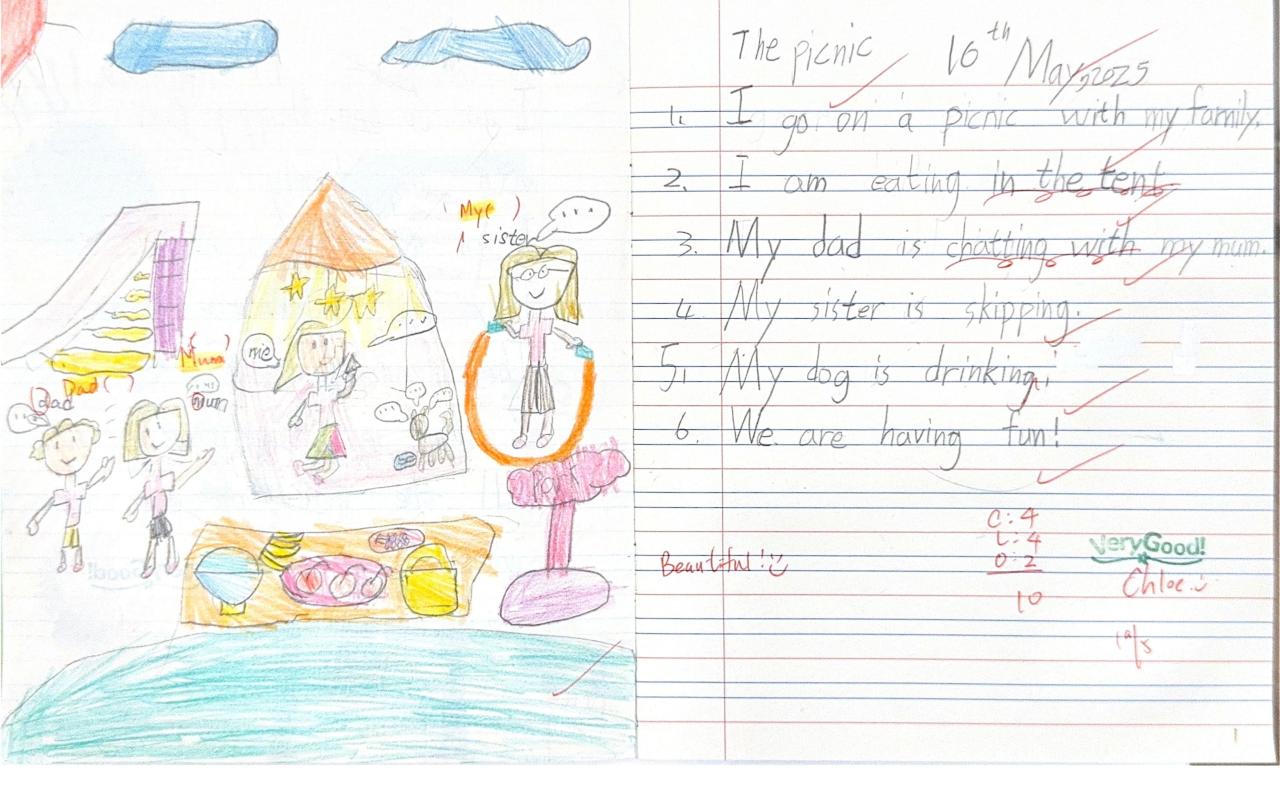 My( )
sister
...
me
Mum
Dad( )
dad
mum
Park
The picnic 10th May,2025
1. I go on a picnic with my family.
2. I am eating in the tent.
3. My dad is chatting with my mum.
4. My sister is skipping.
5. My dog is drinking.
6. We are having fun!
C: 4
L: 4
O: 2
10
Beautiful!
Very Good!
Chloe